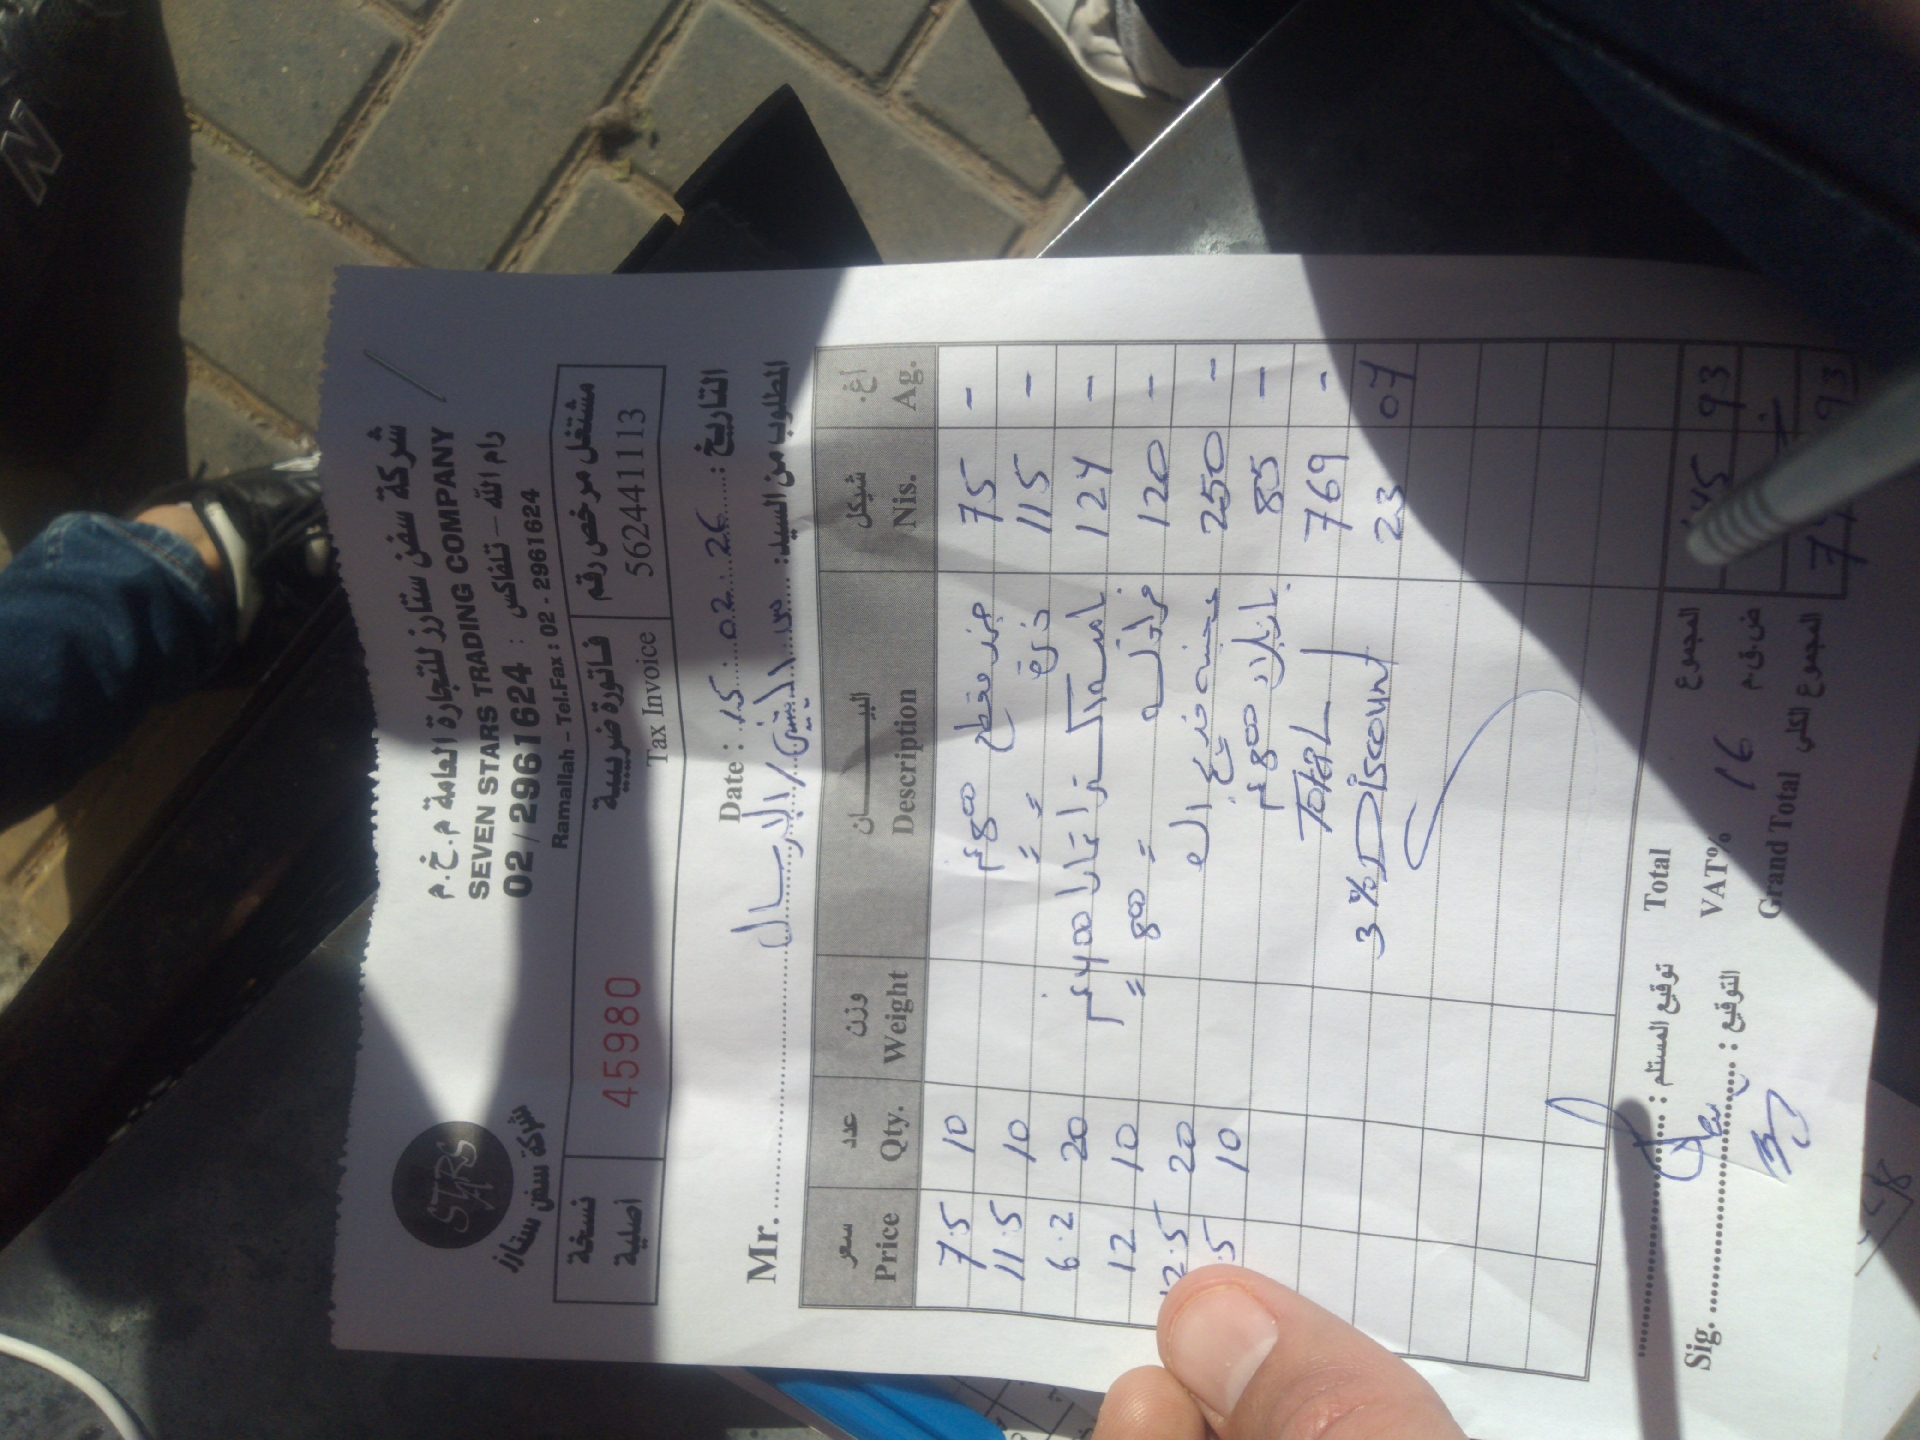 شركة سفن ستارز للتجارة العامة م.خ.م
SEVEN STARS TRADING COMPANY
02/2961624 : رام الله – تلفاكس
Ramallah – Tel.Fax : 02 - 29616​24
STARS
شركة سفن ستارز
نسخة أصلية
45980
فاتورة ضريبية
Tax Invoice
مشتغل مرخص رقم
562441113
Date : 15.02.26 : التاريخ
Mr. الإرسال المطلوب من السيد:
سعر عدد وزن البيـــــان شيكل أغ.
Price Qty. Weight Description Nis. Ag.
7.5 10 جزر مقطع 800غم 75 -
11.5 10 = = ذرة 115 -
6.2 20 400غم 124 -
12 10 = 800 = 120 -
2.5 20 250 -
.5 10 800غم 85 -
Total 769 -
3% Discount 23 07
Total المجموع 745 93
VAT% 16 ض.ق.م
Grand Total المجموع الكلي 93
توقيع المستلم :
Sig. التوقيع :
N